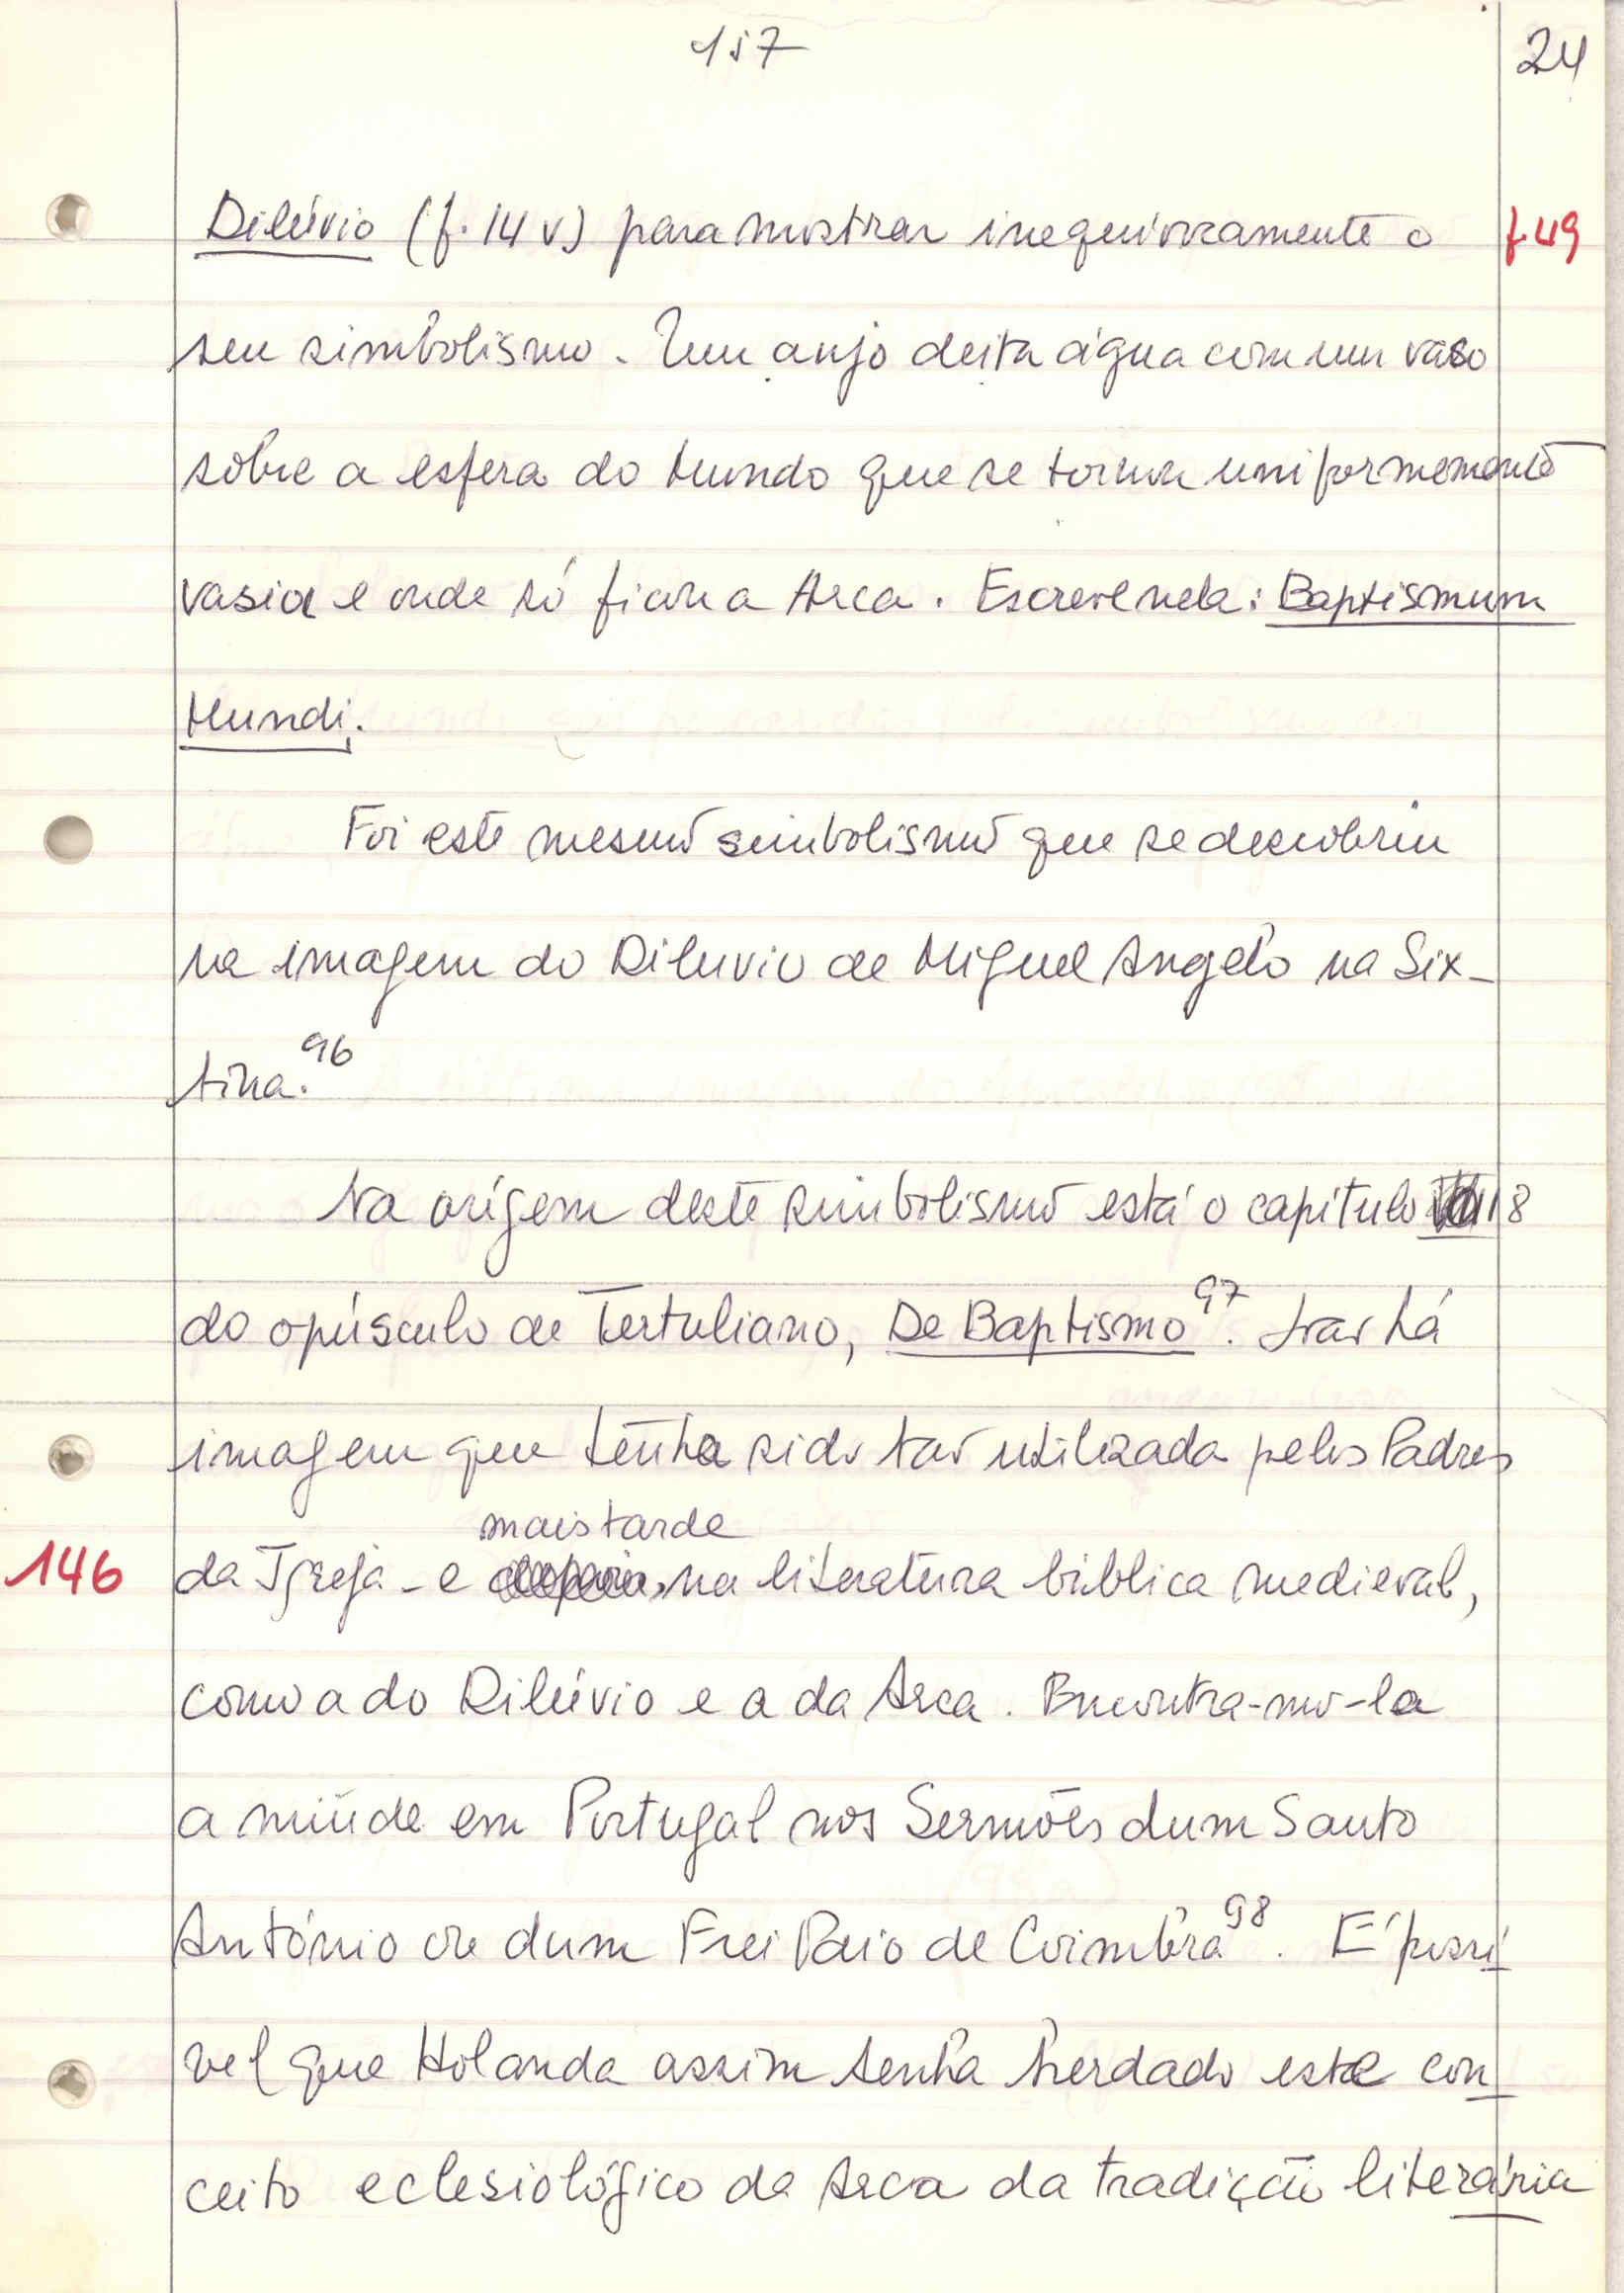 157
24
Dilúvio (f. 14 v) para mostrar inequivocamente o
f. 49
seu simbolismo. Um anjo deita água com um vaso
sobre a esfera do Mundo que se torna uniformemente
vasia e onde só ficara a Arca. Escreve nela: Baptismum
Mundi.
Foi este mesmo simbolismo que se descobriu
na imagem do Diluvio de Miguel Angelo na Six-
tina.96
Na origem deste simbolismo está o capítulo 8
do opúsculo de Tertuliano, De Baptismo97. Não há
imagem que tenha sido tão utilizada pelos Padres
mais tarde
146
da Igreja - e na literatura bíblica medieval,
como a do Dilúvio e a da Arca. Encontra-mo-la
a miúde em Portugal nos Sermões dum Santo
António ou dum Frei Paio de Coimbra98. É possí
vel que Holanda assim tenha herdado este con
ceito eclesiológico da Arca da tradição literária